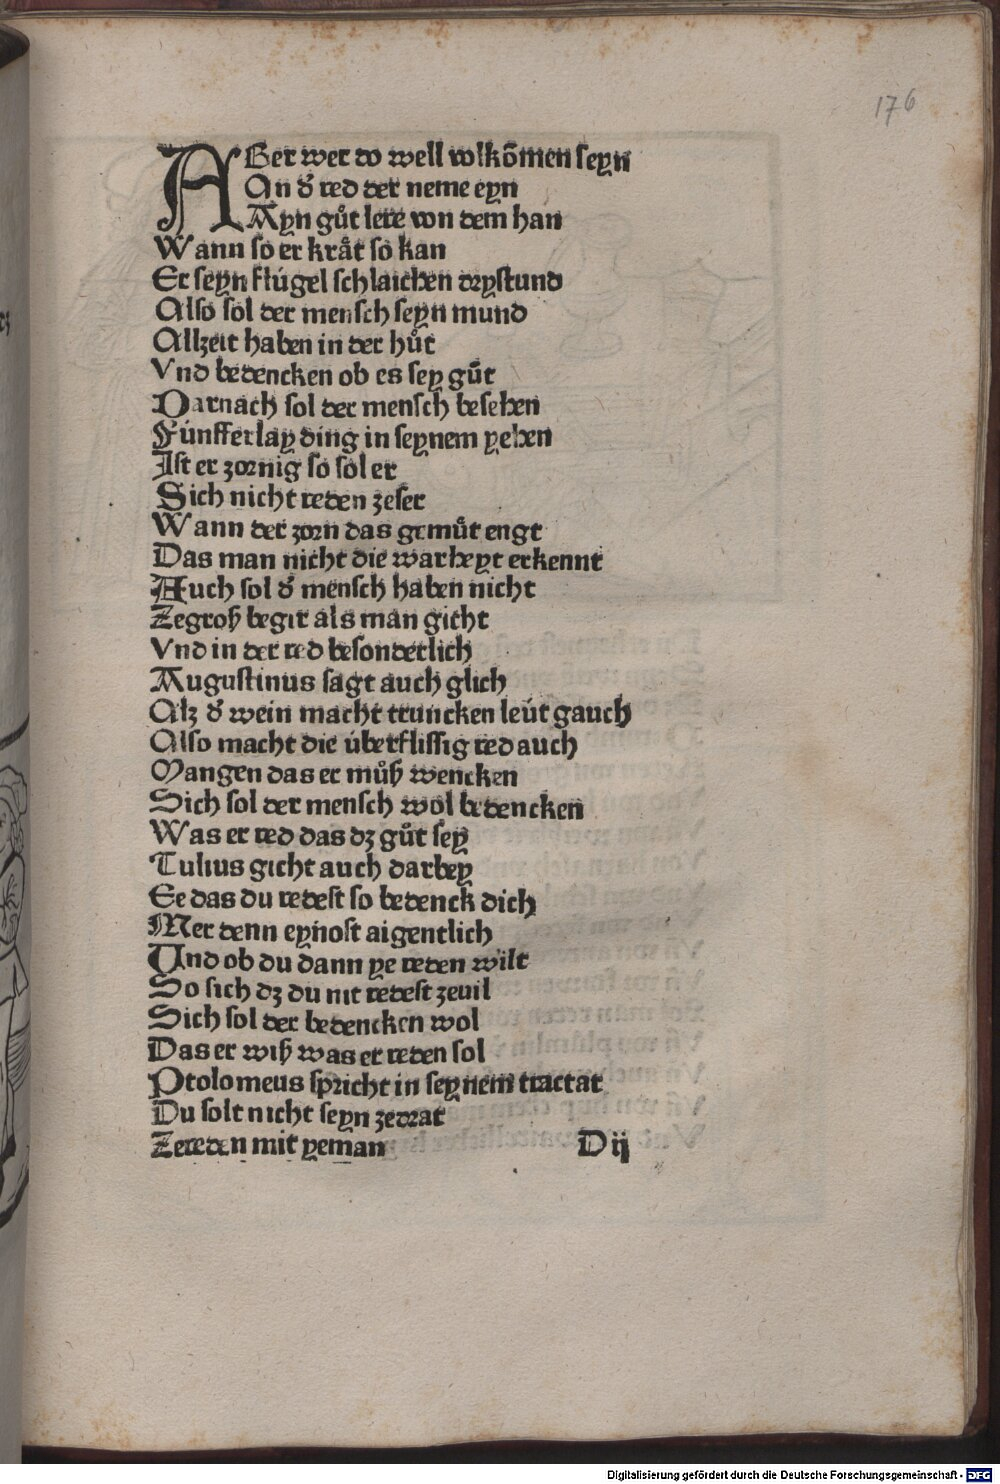 176
ABer wer do well volkom̄en seyn
An d̕ red der neme eyn
Ayn guͦt lere von dem han
Wann so er kraͤt so kan
Er seyn flúgel schlaichen drystund
Also sol der mensch seyn mund
Allzeit haben in der huͦt
Vnd bedencken ob es sey guͦt
Darnach sol der mensch besehen
Fúnfferlay ding in seynem yehen
Ist er zornig so sol er
Sich nicht reden zeser
Wann der zorn das gemuͤt engt
Das man nicht die warheyt erkennt
Auch sol d̕ mensch haben nicht
Zegroß begir als man gicht
Vnd in der red besonderlich
Augustinus sagt auch glich
Alz d̕ wein macht truncken leút gauch
Also macht die úberflissig red auch
Mangen das er muͦß wencken
Sich sol der mensch wol bedencken
Was er red das dz guͦt sey
Tulius gicht auch darbey
Ee das du redest so bedenck dich
Mer denn eynost aigentlich
Und ob du dann ye reden wilt
So sich dz du nit redest zeuil
Sich sol der bedencken wol
Das er wiß was er reden sol
Ptolomeus spricht in seynem tractat
Du solt nicht seyn zedrat
Zereden mit yeman D ij
Digitalisierung gefördert durch die Deutsche Forschungsgemeinschaft - DFG